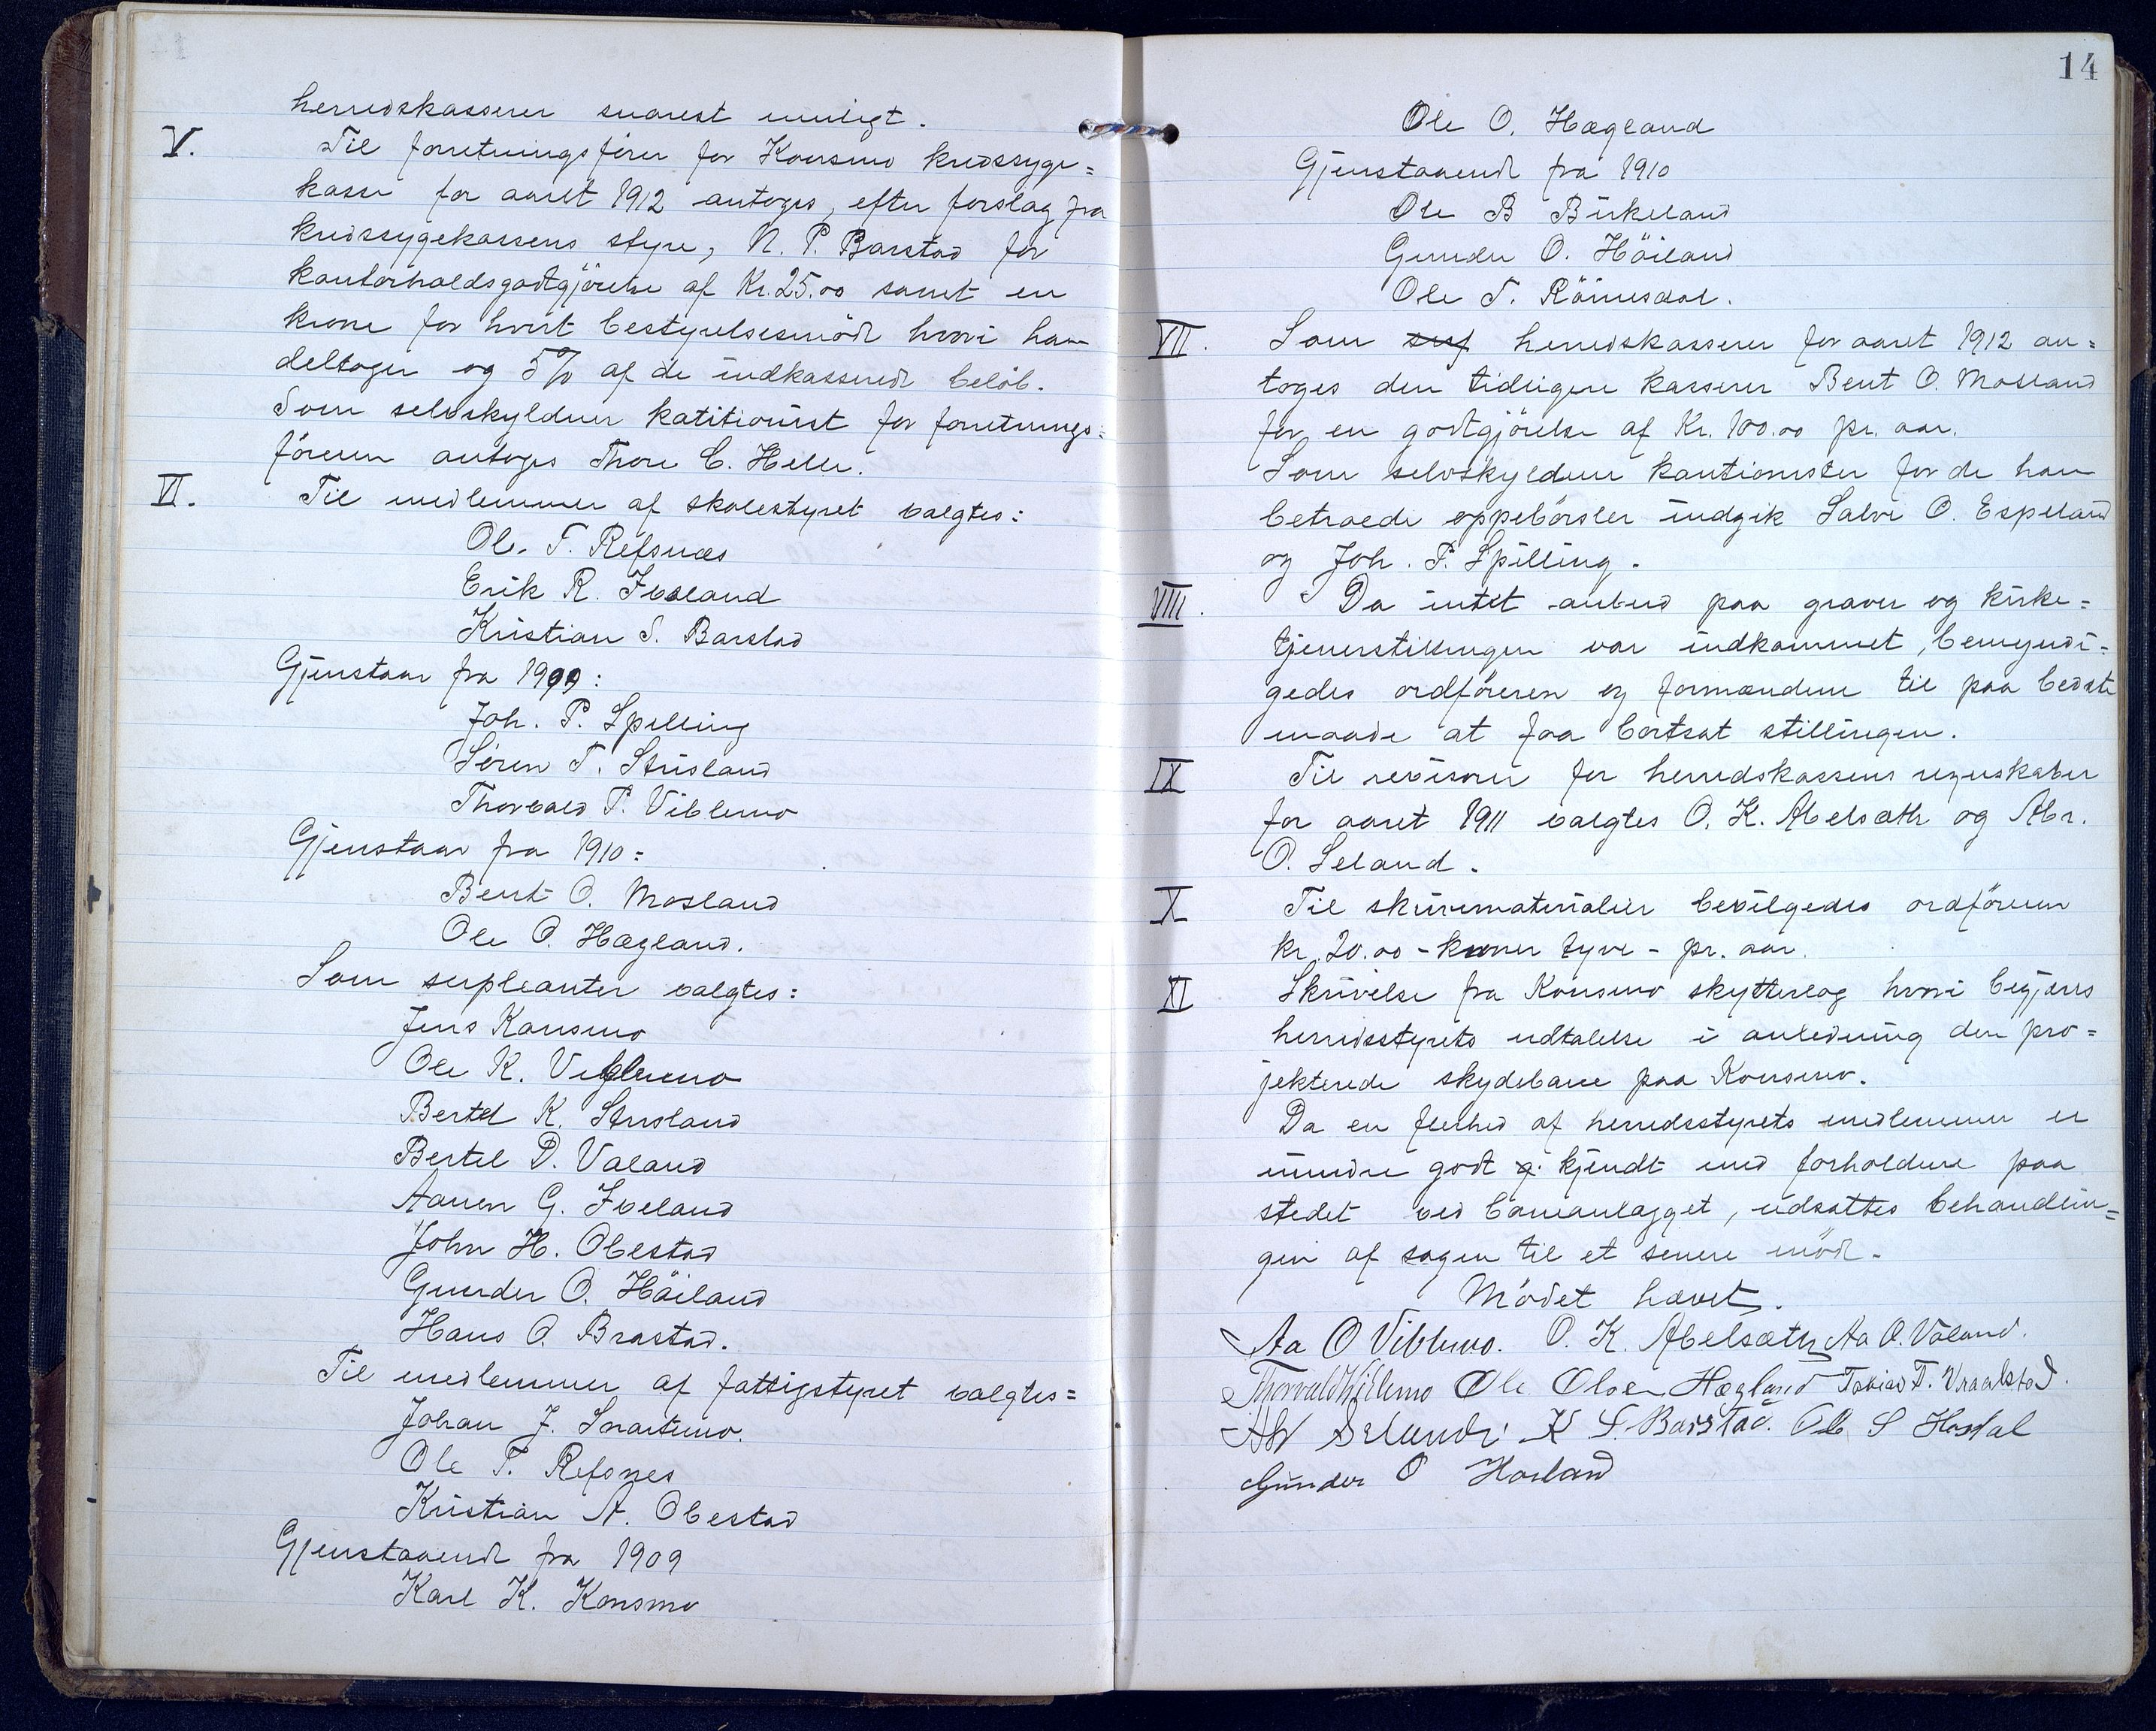 herredskasserer snarest muligt.
V. Til forretningsfører for Konsmo kredssyge=
kasse for aaret 1912 antoges, efter forslag fra
kredssygekassens styre, N. P. Barstad for
kontorholdsgodtgjörelse af Kr. 25.00 samt en
krone for hvert bestyrelsesmöde hvori han
deltager og 5% af de indkasserede belöb.
Som selvskyldner katitionist for forretnings=
föreren antoges Thore C. Helle.
VI. Til medlemmer af skolestyret valgtes:
Ole T. Refsnæs
Erik R. Iveland
Kristian S. Barstad
Gjenstaar fra 1909:
Joh. P. Spilling
Sören T. Strisland
Thorvald P. Viblemo
Gjenstaar fra 1910:
Bent O. Mosland
Ole O. Hægland.
Som supleanter valgtes:
Jens Konsmo
Ole K. Viblemo
Bertel K. Strisland
Bertel D. Valand
Aanen G. Iveland
John H. Obestad
Gunder O. Höiland
Hans O. Brastad.
Til medlemmer af fattigstyret valgtes:
Johan J. Snartemo.
Ole T. Refsnes
Kristian A. Obestad
Gjenstaaende fra 1909
Karl K. Konsmo
14
Ole O. Hægland
Gjenstaaende fra 1910
Ole B Birkeland
Gunder O. Höiland
Ole T. Römesdal.
VII. Som sup herredskasserer for aaret 1912 an=
toges den tidligere kasserer Bent O. Mosland
for en godtgjörelse af Kr. 100.00 pr. aar.
Som selvskyldnere kautionister for de ham
betroede oppebörsler indgik Salve O. Espeland
og Joh. P. Spilling.
VIII. Da intet anbud paa graver og kirke=
tjenerstillingen var indkommet, bemyndi=
gedes ordföreren og formændene til paa bedste
maade at faa bortsat stillingen.
IX Til revisorer for herredskassens regnskaber
for aaret 1911 valgtes O. K. Abelsæth og Abr.
O. Seland.
X Til skrivematerialier bevilgedes ordföreren
kr. 20.00 - kroner tyve - pr. aar.
XI Skrivelse fra Konsmo skytterlag hvori begjæres
herredsstyrets udtalelse i anledning den pro=
jekterede skydebane paa Konsmo.
Da en flerhed af herredsstyrets medlemmer er
mindre godt g. kjendt med forholdene paa
stedet ved baneanlægget, udsattes behandlin=
gen af sagen til et senere möde.
Mödet hævet.
Aa O Viblemo. O. K. Abelsæth Aa O. Valand.
Thorvald Viblemo Ole Olsen Hægland Tobias T. Vraalstad.
K S. Barstad. Ole S
Gunder O Høiland